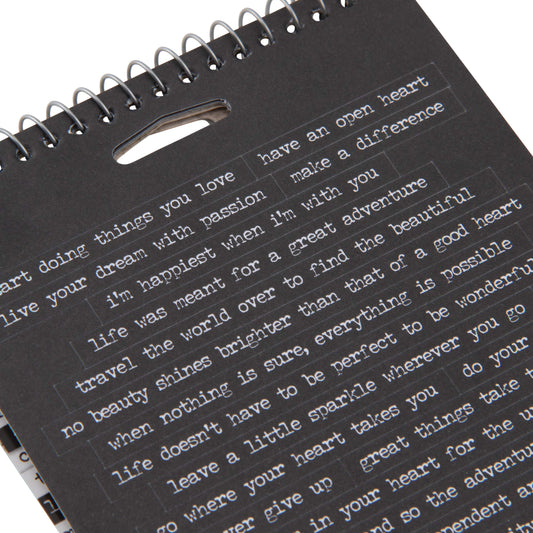 art doing things you love have an open heart
live your dream with passion make a difference
i'm happiest when i'm with you
life was meant for a great adventure
travel the world over to find the beautiful
no beauty shines brighter than that of a good heart
when nothing is sure, everything is possible
life doesn't have to be perfect to be wonderful
leave a little sparkle wherever you go
go where your heart takes you do your
ver give up great things take t
in your heart for the u
nd so the adventur
pendent an